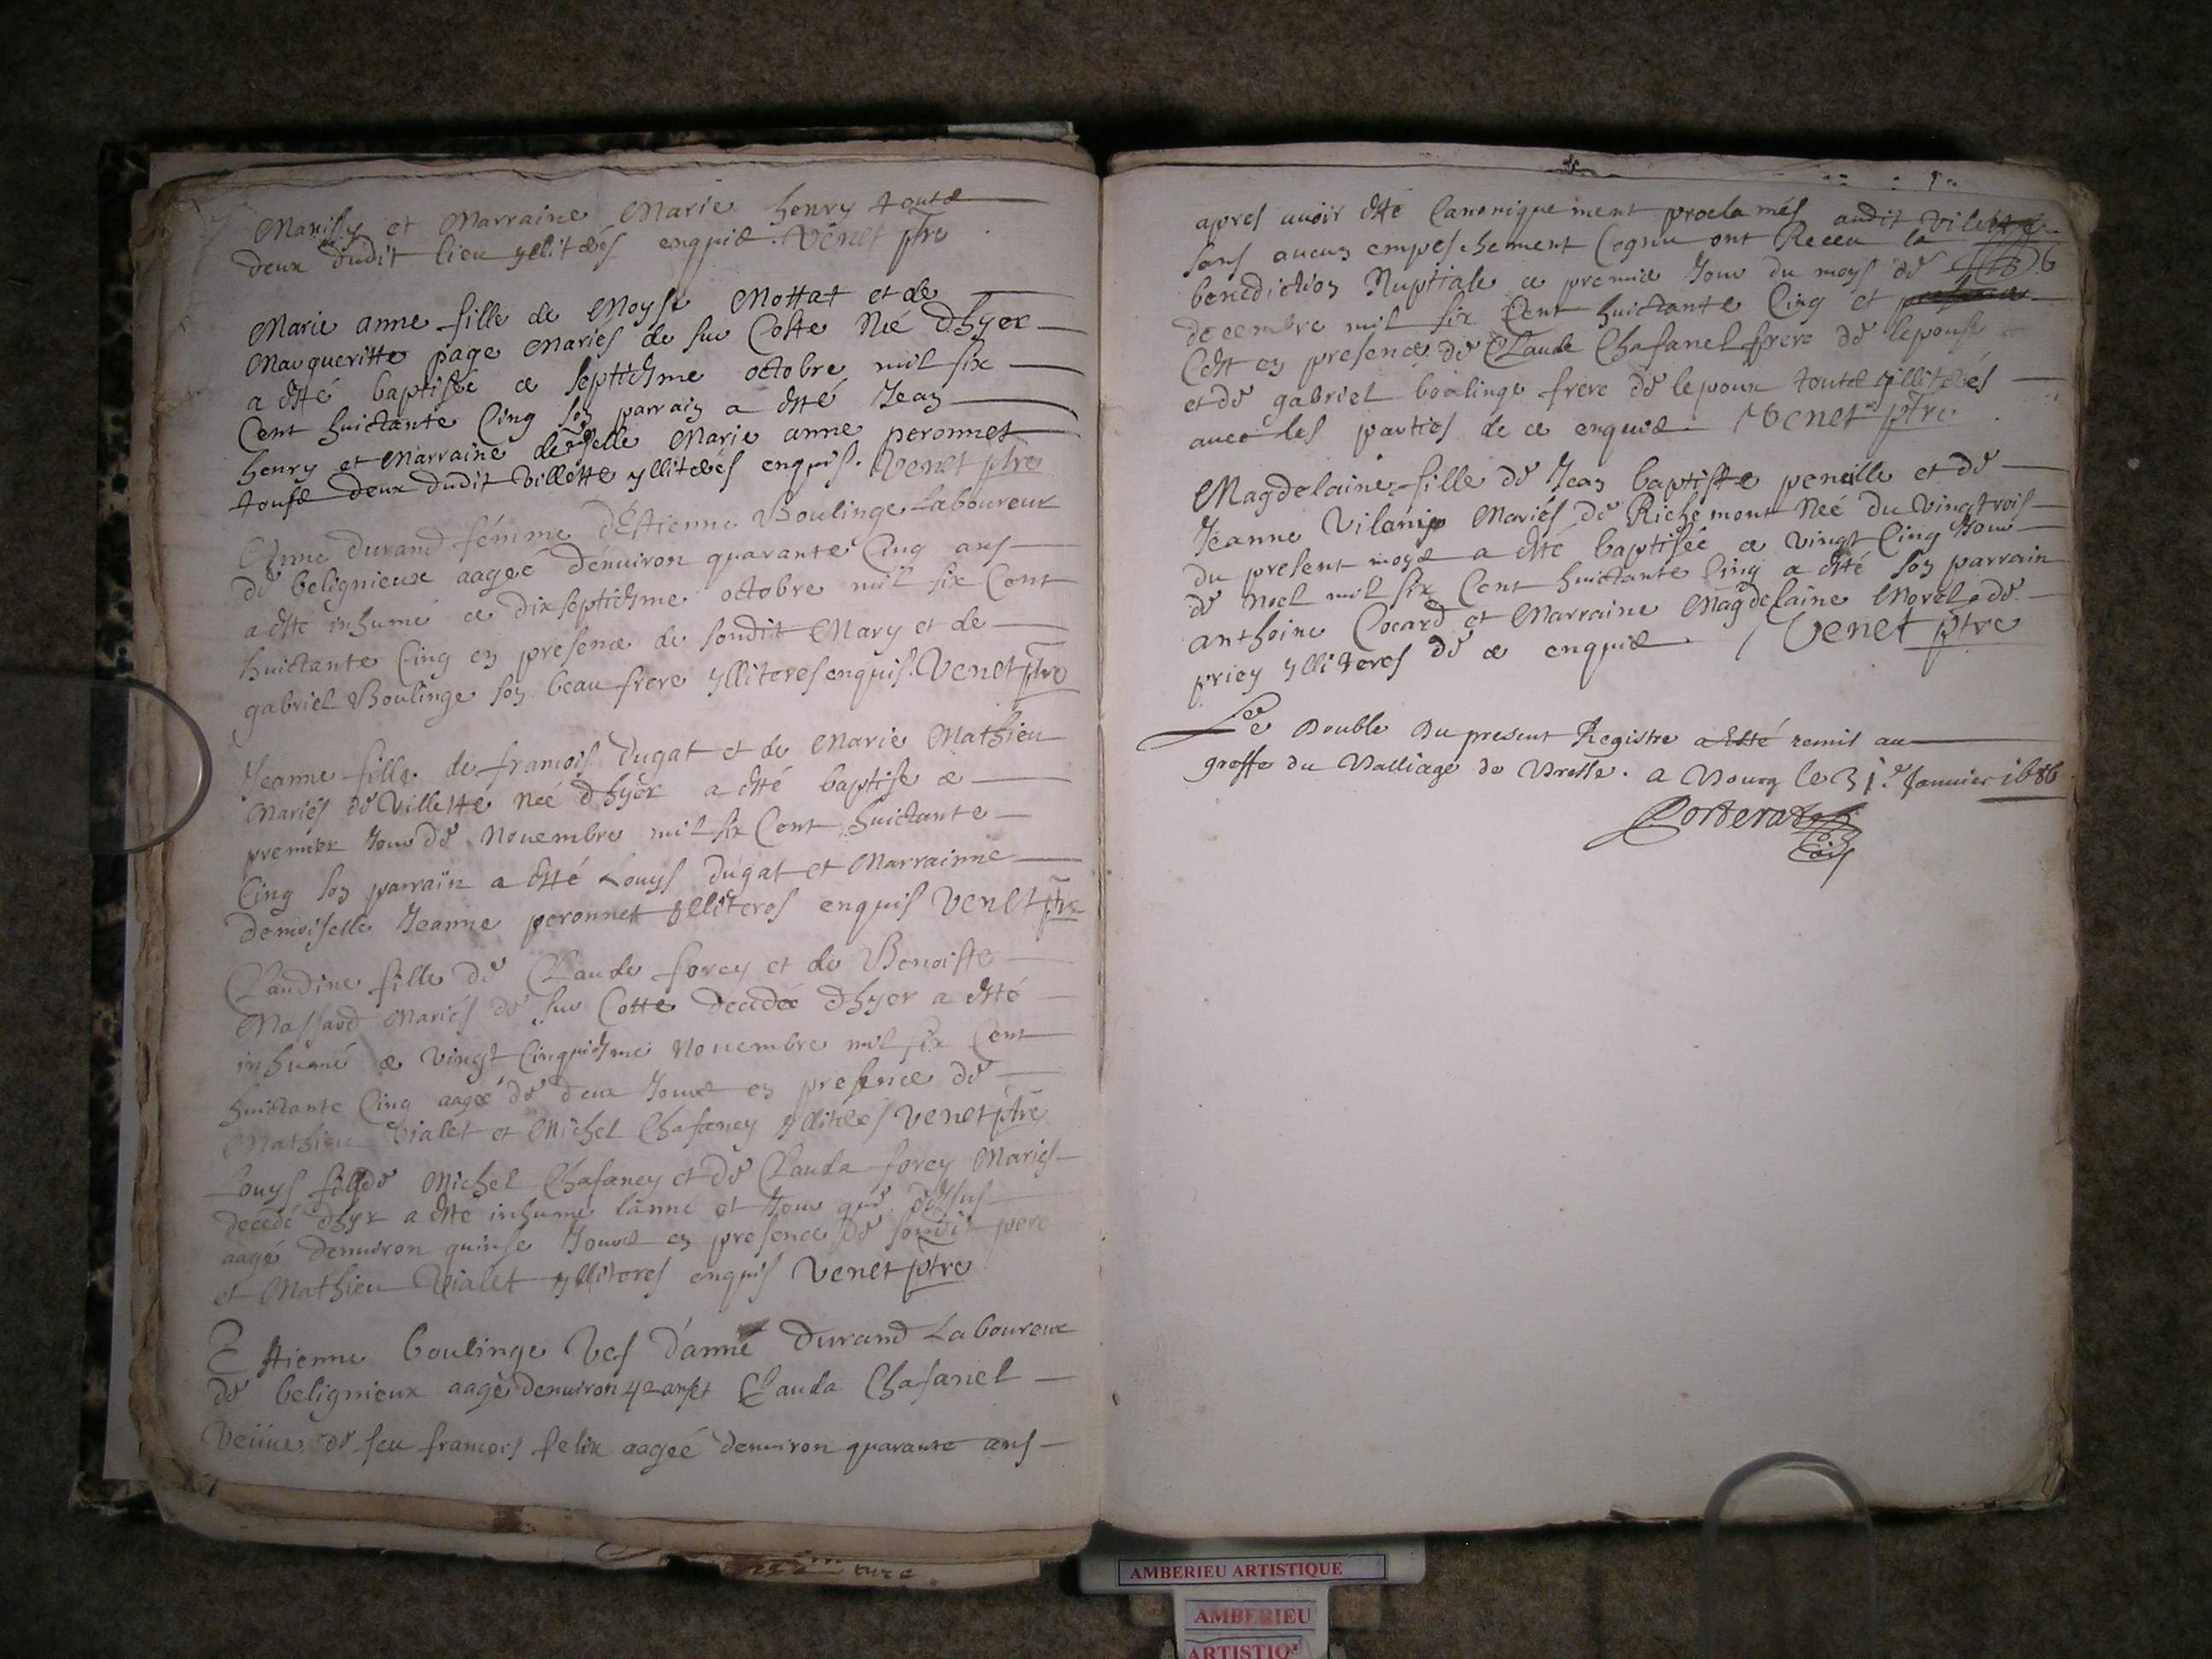 et Marraine Marie henry toute
deux dudit lieu enquis. Venet ptre
Marie anne fille de Moyse Mottat et de
Margueritte page Mariés de sur Coste Neé dhyer
a esté baptiseé ce septiesme octobre mil six
Cent huictante Cinq son parrain a esté Jean
henry et Marraine demoiselle Marie anne peronnet
tous deux dudit Villette ylliterés enquis. Venet ptre
Anne durand femme d'Estienne Boulinge Laboureur
de belignieux aageé denuiron quarante Cinq ans
a esté inhumé ce dixseptiesme octobre mil six Cent
huictante Cinq en presence de sondit Mary et de
gabriel Boulinge son beau frere ylliteres enquis. Venet ptre
Jeanne fille de francois dugat et de Marie Mathieu
Mariés de Villette Neé dhyer a esté baptise ce
premier Jour de Nouembre mil six Cent huictante
Cinq son parrain a esté Louys dugat et Marrainne
demoiselle Jeanne peronnet ylliteres enquis Venet ptre
Claudine fille de Claude forey et de Benoiste
Massard Mariés de sur Cotte decedeé dhyer a esté
inhumé ce vingt Cinquiesme Nouembre mil six Cent
huictante Cinq aageé de deux Jours en presence de
Mathieu Vialet et Michel Chafaney Venet ptre
Louys fils de Michel Chafaney et de Clauda forey Mariés
decedé dhyer a esté inhumé lanne et Jour que dessus
aagé denuiron quinse Jours en presence de sondit pere
et Mathieu Vialet ylliteres enquis Venet ptre
Estienne boulinge Vef d'anne durand Laboureur
de belignieux aagé denuiron 42 ans et Clauda Chafanel
Veüue de feu francois felix aageé denuiron quarante ans
apres auoir esté Canoniquement proclamés audit Vilette
sans aucun empeschement Cognu ont Receu la
benediction Nuptiale ce premier Jour du moys de
decembre mil six Cent huictante Cinq et
Cest en presence de Claude Chafanel frere de lepouse
et de gabriel boulinge frere de lepoux
auec les parties de ce enquis. Venet ptre
Magdelaine fille de Jean baptiste et de
Jeanne Mariés de Richemont Neé du Vingtrois
du present moys a esté baptiseé ce vingt Cinq Jour
de Noel mil six Cent huictante Cinq a esté son parrain
anthoine Cocard et Marraine Magdelaine Morel de
priey ylliteres de ce enquis. Venet ptre
Le Double du present Registre a Esté remis au
greffe du Balliage de Bresse. a Bourg le 31e Januier 1686
AMBERIEU ARTISTIQUE
AMBERIEU